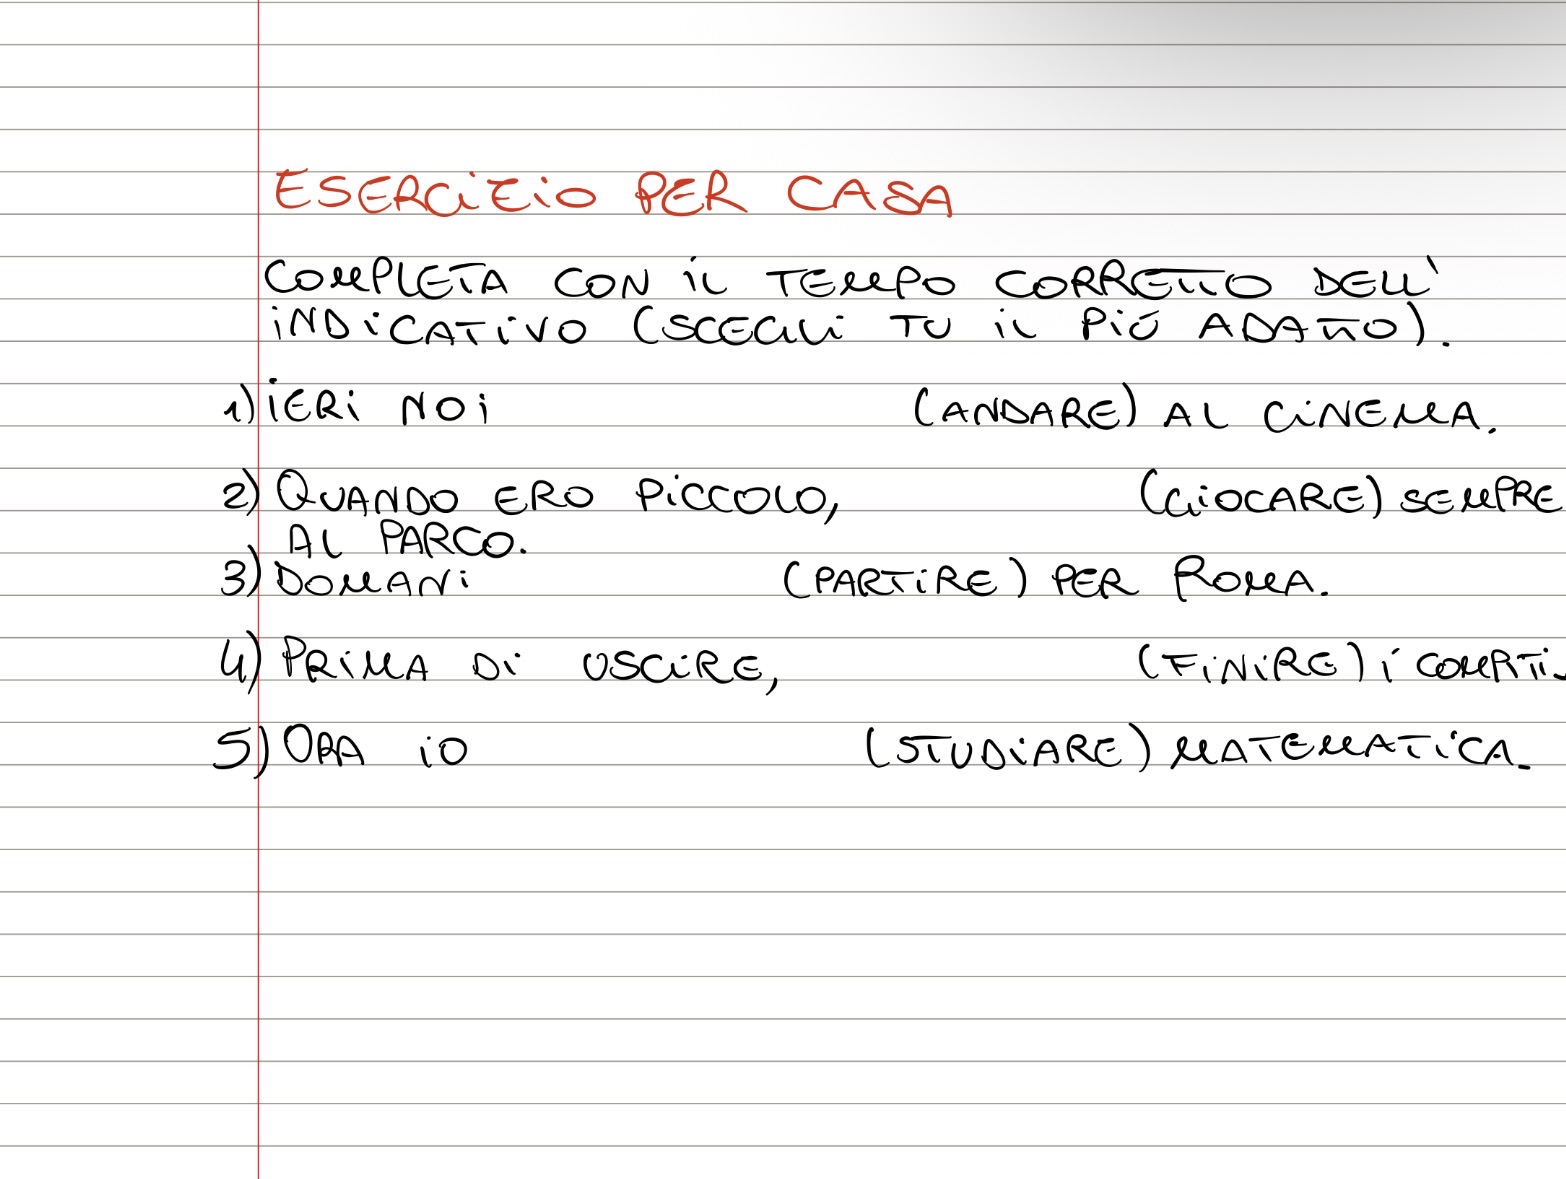 ESERCIZIO PER CASA
COMPLETA CON IL TEMPO CORRETTO DELL'
INDICATIVO (SCEGLI TU IL PIÚ ADATTO).
1) IERI NOI (ANDARE) AL CINEMA.
2) QUANDO ERO PICCOLO, (GIOCARE) SEMPRE
AL PARCO.
3) DOMANI (PARTIRE) PER ROMA.
4) PRIMA DI USCIRE, (FINIRE) I COMPITI.
5) ORA IO (STUDIARE) MATEMATICA.